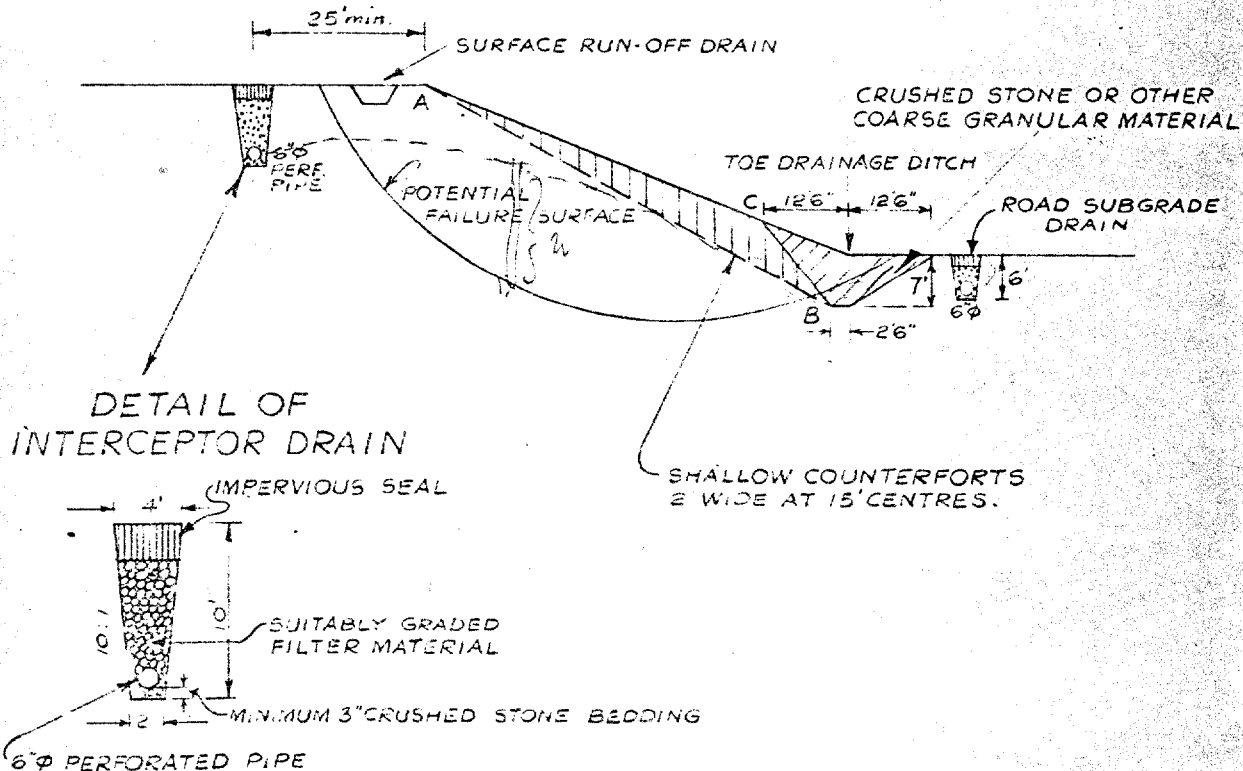 25' min.
SURFACE RUN-OFF DRAIN
A
CRUSHED STONE OR OTHER
COARSE GRANULAR MATERIAL
TOE DRAINAGE DITCH
6"φ
PERF.
PIPE
POTENTIAL
FAILURE SURFACE
u
C
12'6"
12'6"
ROAD SUBGRADE
DRAIN
7'
6'
6"φ
B
2'6"
DETAIL OF
INTERCEPTOR DRAIN
SHALLOW COUNTERFORTS
2' WIDE AT 15' CENTRES.
IMPERVIOUS SEAL
4'
10'
10:1
SUITABLY GRADED
FILTER MATERIAL
2
MINIMUM 3" CRUSHED STONE BEDDING
6"φ PERFORATED PIPE